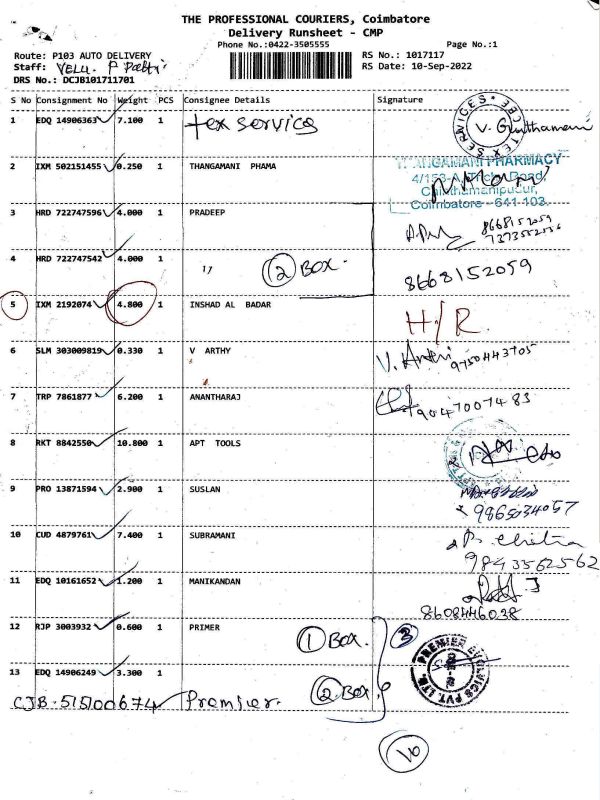 THE PROFESSIONAL COURIERS, Coimbatore
Delivery Runsheet - CMP
Phone No.:0422-3505555 Page No.:1
Route: P103 AUTO DELIVERY RS No.: 1017117
Staff: VELU. P RS Date: 10-Sep-2022
DRS No.: DCJB101711701
S No Consignment No Weight PCS Consignee Details Signature
1 EDQ 14906363 7.100 1 tex services TEX SERVICES CBE V. Gruthamani
2 IXM 502151455 0.250 1 THANGAMANI PHAMA THANGAMANI PHARMACY
4/153-A, Trichy Road,
Chinthamanipudur,
Coimbatore - 641 103.
3 HRD 722747596 4.000 1 PRADEEP 8668152059
7373552556
4 HRD 722747542 4.000 1 " 2 BOX. 8668152059
5 IXM 2192074 4.800 1 INSHAD AL BADAR H/R.
6 SLM 303009819 0.330 1 V ARTHY V. Arthi 9750443705
7 TRP 7861877 6.200 1 ANANTHARAJ 9047007483
8 RKT 8842550 10.800 1 APT TOOLS
9 PRO 13871594 2.900 1 SUSLAN
9865034057
10 CUD 4879761 7.400 1 SUBRAMANI P. Chitra
9843562562
11 EDQ 10161652 1.200 1 MANIKANDAN
8608446038
12 RJP 3003932 0.600 1 PRIMER 1 BOX. 3
13 EDQ 14906249 3.300 1 2 BOX PREMIER PVT. LTD.
CJB-515100674 Premier.
10